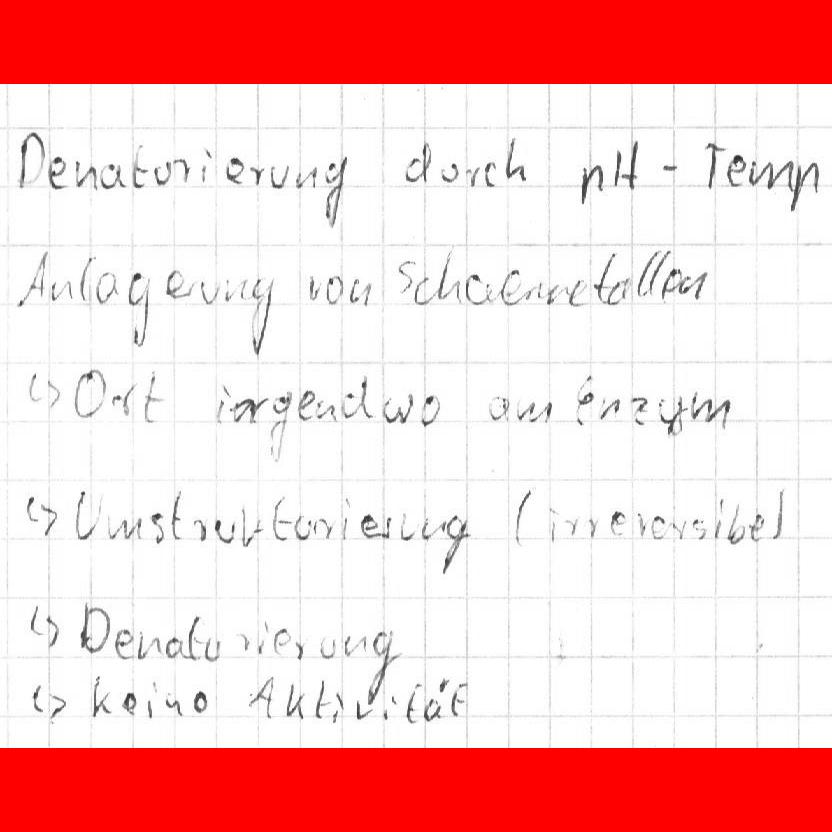 Denaturierung durch pH - Temp
Anlagerung von Schwermetallen
↳ Ort irgendwo am Enzym
↳ Umstrukturierung (irreversibel
↳ Denaturierung
↳ keine Aktivität